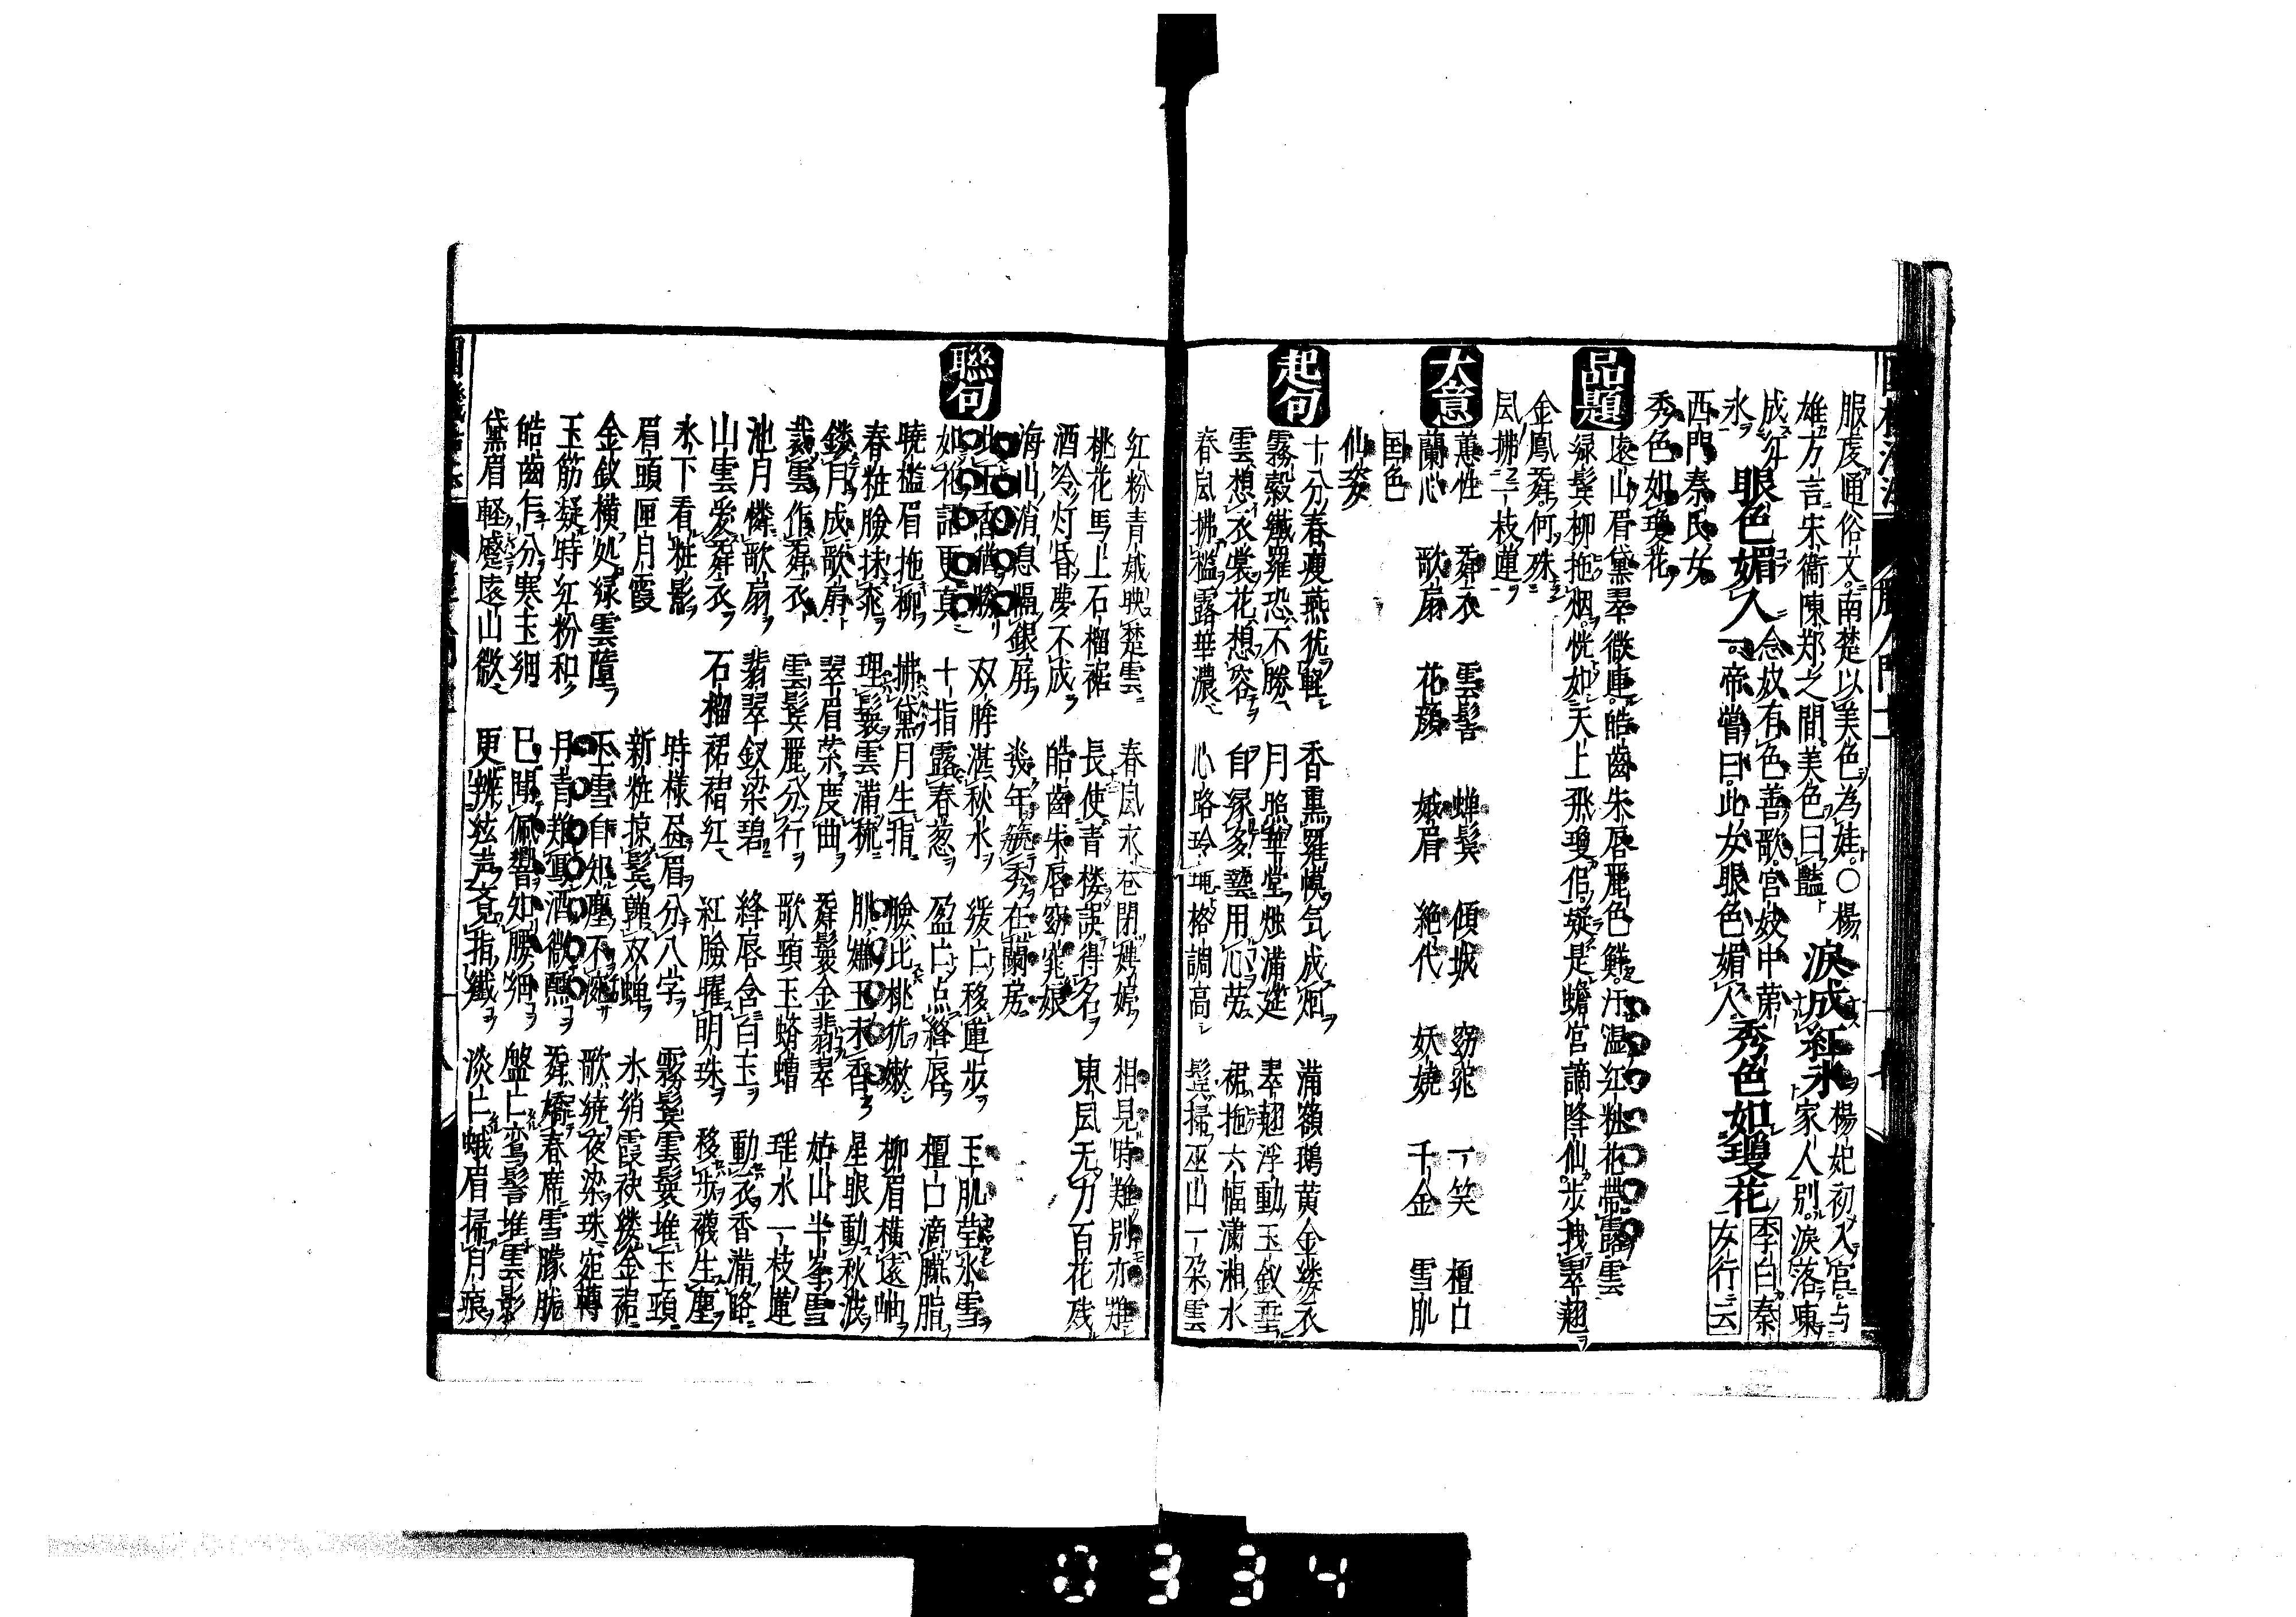 服虔通俗文南楚以美色為娃○楊
雄方言宋衛陳郑之間美色曰豔
淚成紅氷
楊妃初入宮与
家人別淚落東
成
氷
眼色媚人
念奴有色善歌宮妓中第一
帝嘗曰此女眼色媚人
秀色如瓊花
李白秦
女行云
西門秦氏女
秀色如瓊花
品題
遠山眉黛翠微連皓齒朱唇麗色鮮汗温紅粧花帶露雲
緑鬂柳拖烟恍如天上飛瓊侶疑是蟾宮謫降仙步拽翠翹
金鳳舞何殊
風拂一枝蓮
大意
蕙性 舞衣 雲髻 蟬鬂 傾城 窈窕 一笑 檀口
蘭心 歌扇 花顔 娥眉 絶代 妖嬈 千金 雪肌
国色
仙姿
起句
十分春瘦燕猶軽 香熏羅幙気成烟 滿額鵝黄金縷衣
霧縠纖羅恐不勝 月照華堂燭滿筵 翠翹浮動玉釵垂
雲想衣裳花想容 自縁多藝用心労 裙拖六幅瀟湘水
春風拂檻露華濃 心路玲瓏格調高 鬓掃巫山一朶雲
紅粉青娥映楚雲 春風永巷閉娉婷 相見時難別亦難
桃花馬上石榴裙 長使青楼誤得名 東風无力百花残
酒冷灯昏夢不成 皓齒朱唇窈窕娘
海山消息隔銀屏 幾年・秀在蘭房
聯句
此玉香猶勝 双眸湛秋水 緩亡移蓮步 玉肌莹氷雪
如花語更真 十指露春葱 盈亡点絳唇 檀口滴臙脂
暁檻眉拖柳 拂黛月生指 臉比桃猶嫩 柳眉横遠岫
春粧臉抹桃 理鬟雲滿梳 肌嫌玉未香 星眼動秋波
鏤月成歌扇 翠眉萦度曲 舞鬟金翡翠 姑山半峯雪
裁雲作舞衣 雲鬂麗分行 歌頸玉蛴螬 瑤水一枝蓮
池月憐歌扇 翡翠釵染碧 絳唇含白玉 動衣香滿路
山雲愛舞衣 石榴裙褶紅 紅臉擢明珠 移步襪生塵
氷下看粧影 時様画眉分八字 霧鬂雲鬟堆玉頭
眉頭匣月霞 新粧掠鬂亸双蝉 氷綃霞袂縷金裙
金釵横処緑雲墮 玉雪自知塵不涴 歌繞夜梁珠宛轉
玉筋凝時紅粉和 丹青難寫酒微醺 舞嬌春席雪朦朧
皓齒乍分寒玉細 已聞佩響知腰細 盤亡鸞髻堆雲影
黛眉軽蹙遠山微 更辨絃声覺指纖 淡亡蛾眉掃月痕
0334